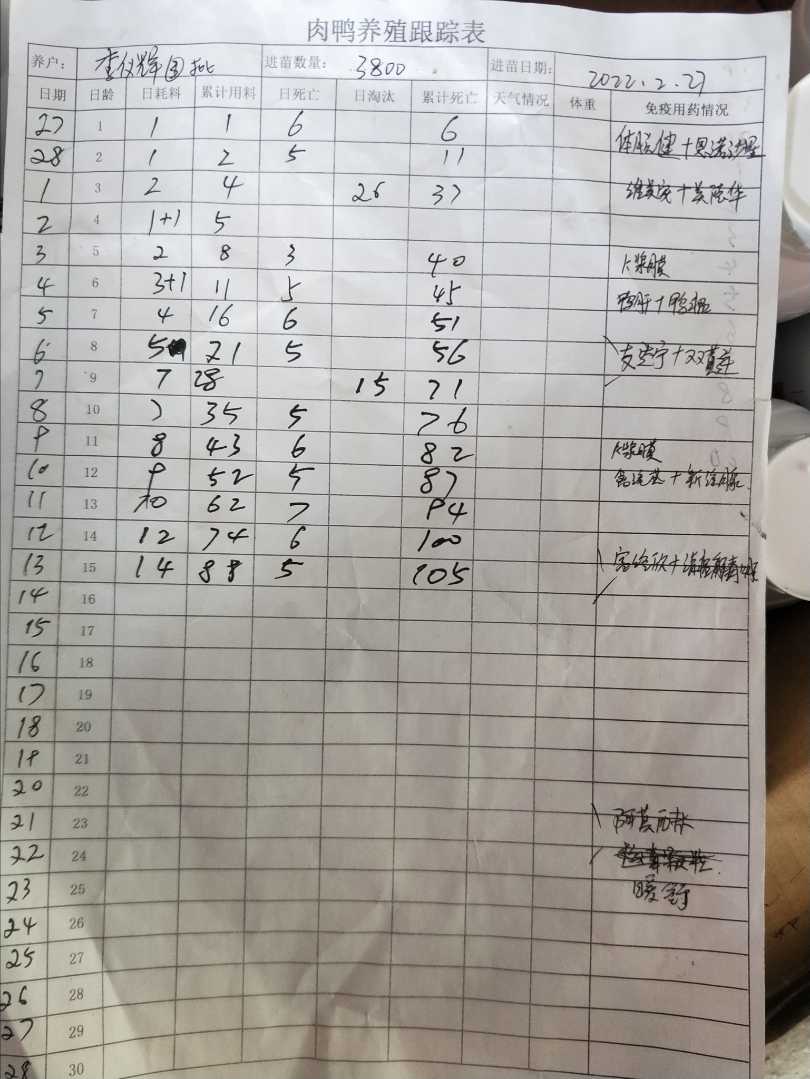 肉鸭养殖跟踪表
养户: 李仪辉 进苗数量: 3800 进苗日期: 2022.2.27
日期 日龄 日耗料 累计用料 日死亡 日淘汰 累计死亡 天气情况 体重 免疫用药情况
27 1 1 1 6 6
28 2 1 2 5 11
1 3 2 4 26 37
2 4 1+1 5
3 5 2 8 3 40 浆膜
4 6 3+1 11 5 45
5 7 4 16 6 51
6 8 5 21 5 56
7 9 7 28 15 71
8 10 7 35 5 76
9 11 8 43 6 82 浆膜
10 12 9 52 5 87
11 13 10 62 7 94
12 14 12 74 6 100
13 15 14 88 5 105
14 16
15 17
16 18
17 19
18 20
19 21
20 22
21 23
22 24
23 25 暖舒
24 26
25 27
26 28
27 29
28 30